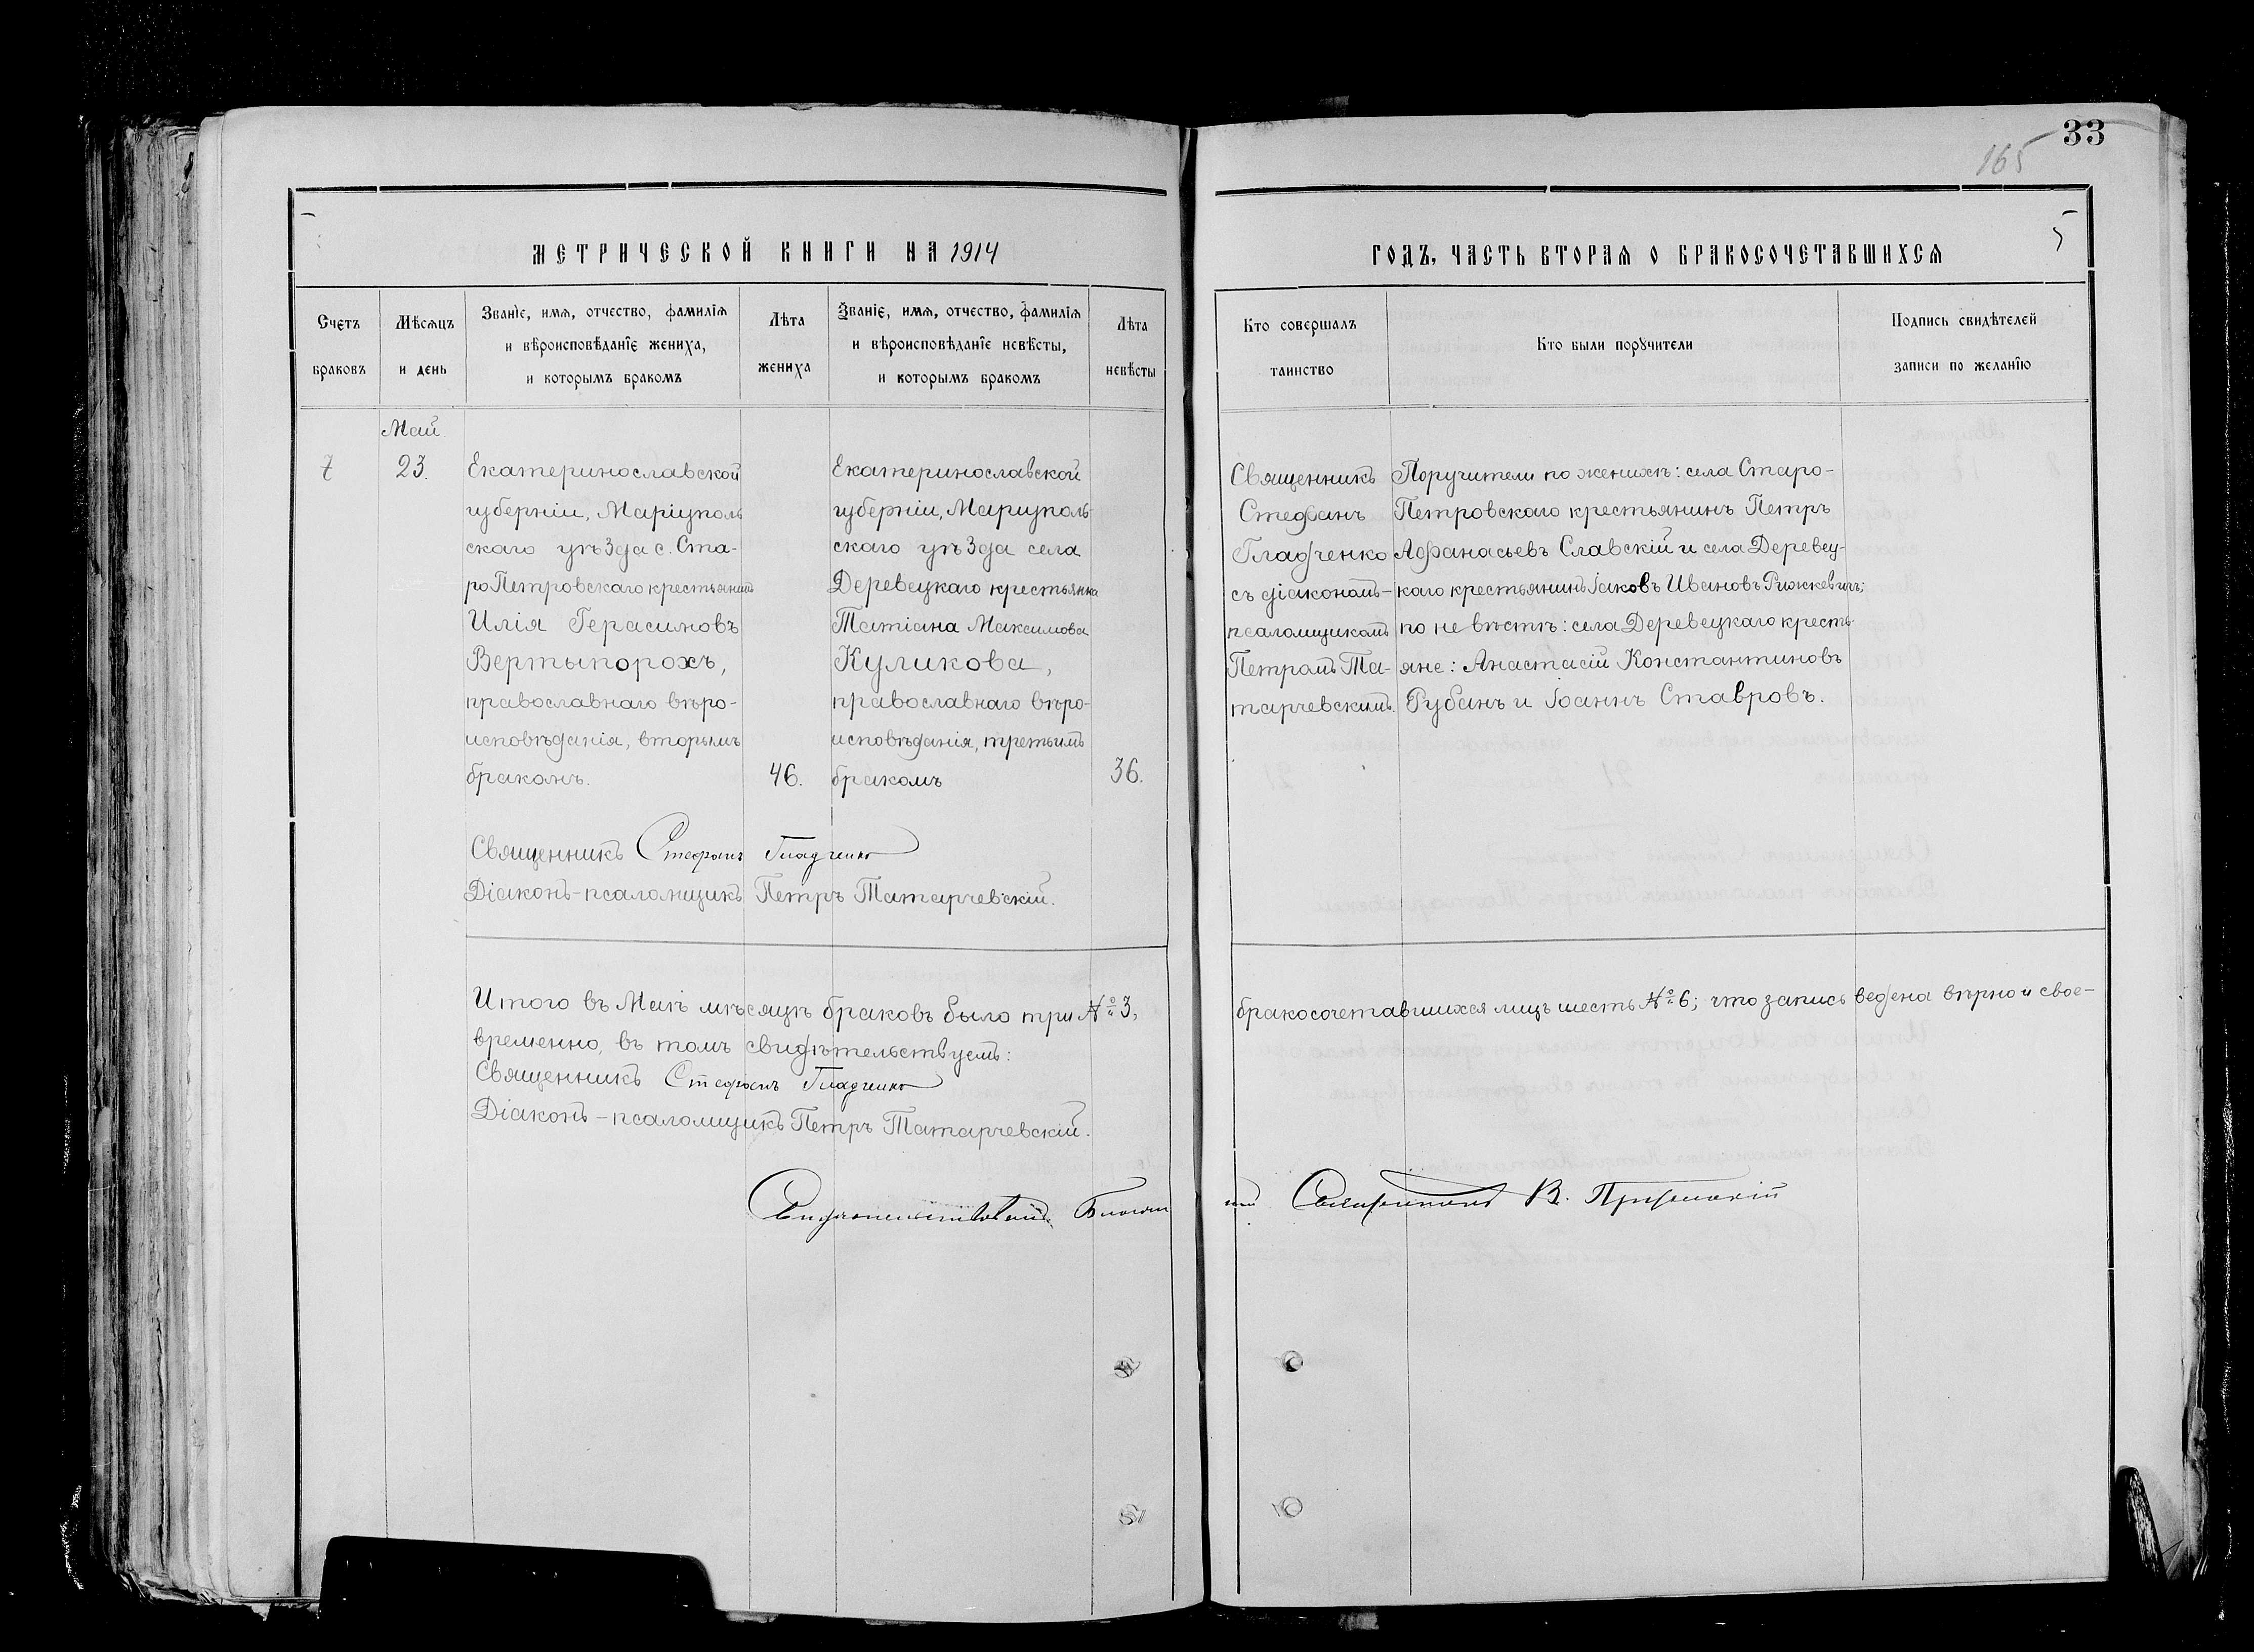 33
165
МЕТРИЧЕСКОЙ КНИГИ НА 1914
ГОДЪ, ЧАСТЬ ВТОРАѦ О БРАКОСОЧЕТАВШИХСѦ
5
Счетъ
браковъ
Мѣсѧцъ
и день
Званіе, имѧ, отчество, фамиліѧ
и вѣроисповѣданіе жениха,
и которымъ бракомъ
Лѣта
жениха
Званіе, имѧ, отчество, фамиліѧ
и вѣроисповѣданіе невѣсты,
и которымъ бракомъ
Лѣта
невѣсты
Кто совершалъ
таинство
Кто были порꙋчители
Подпись свидѣтелей
записи по желанію
Май
7
23.
Екатеринославской
губерніи, Маріуполь
скаго уѣзда с. Ста-
ро Петровскаго крестьянинъ
Илія Герасимовъ
Вертыпорохъ,
православнаго вѣро-
исповѣданія, вторымъ
бракомъ.
46.
Екатеринославской
губерніи, Маріуполь-
скаго уѣзда села
Деревецкаго крестьянка
Татіана Максимова
Куликова,
православнаго вѣро-
исповѣданія, третьимъ
бракомъ
36.
Священникъ
Стефанъ
Гладченко
съ діакономъ-
псаломщикомъ
Петромъ Та-
тарчевскимъ.
Поручители по женихѣ: села Старо-
Петровскаго крестьянинъ Петръ
Афанасьевъ Славскій и села Деревец-
каго крестьянинъ Іаковъ Ивановъ Рижкевичъ;
по невѣстѣ: села Деревецкаго кресть-
яне: Анастасій Константиновъ
Рубанъ и Іоаннъ Ставровъ.
Священникъ Стефанъ Гладченко
Діаконъ-псаломщикъ Петръ Татарчевскій.
Итого въ Маѣ мѣсяцѣ браковъ было три №3, бракосочетавшихся лицъ шесть №6; что запись ведена вѣрно и свое-
временно, въ томъ свидѣтельствуемъ:
Священникъ Стефанъ Гладченко
Діаконъ-псаломщикъ Петръ Татарчевскій.
Священникъ В.